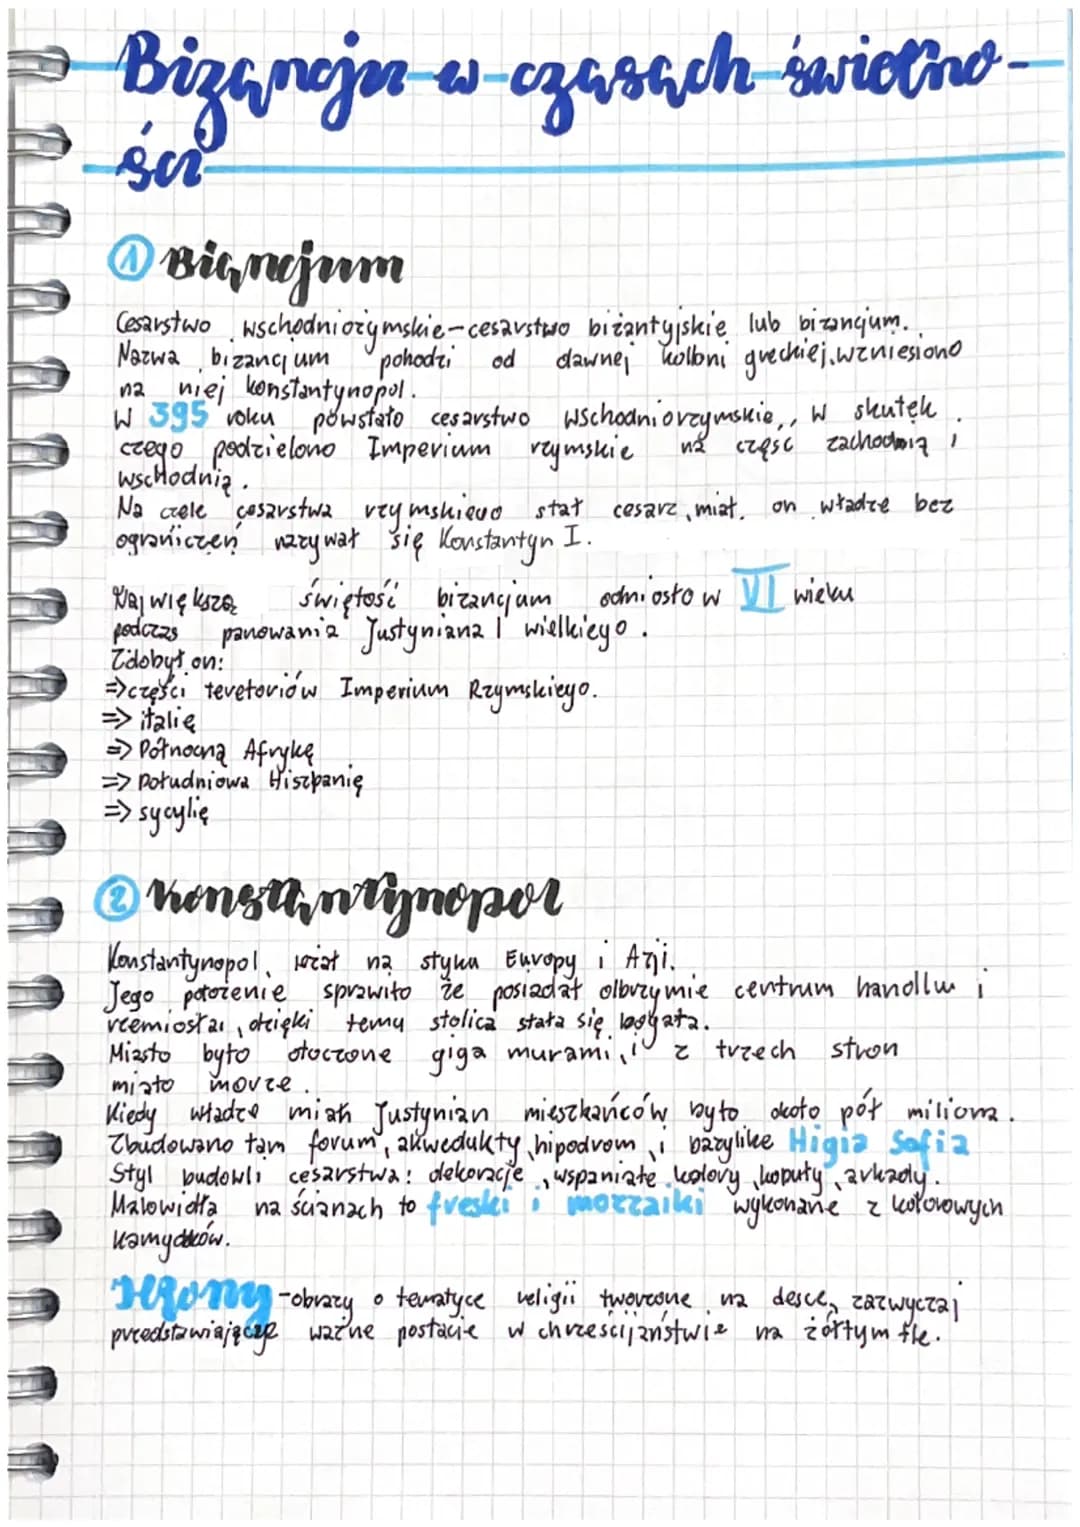 Bizancjum w czasach świetno-
ści
① Biancjum
Cesarstwo wschodniorzymskie-cesarstwo bizantyjskie lub bizancjum.
Nazwa bizancjum pohodzi od dawnej kolboni greckiej, wzniesiono
na niej konstantynopol.
W 395 roku powstało cesarstwo wschodniorzymskie, w skutek
czego podzielono Imperium rzymskie na część zachodnią i
wschodnią.
Na czele cesarstwa rzymskiego stał cesarz, miał on władze bez
ograniczeń nazywał się Konstantyn I.
Największą świętość bizancjum odniosło w VI wieku
podczas panowania Justyniana I wielkiego.
Zdobył on:
=>części teretoriów Imperium Rzymskiego.
=> italię
=> Północną Afrykę
=> Południowa Hiszpanię
=> sycylię
② Konstantynopol
Konstantynopol, leżał na styku Europy i Azji.
Jego położenie sprawiło że posiadał olbrzymie centrum handlu i
rzemiosła, dzięki temu stolica stała się bogata.
Miasto było otoczone giga murami, i z trzech stron
miało morze.
Kiedy władze miał Justynian mieszkańców było około pół miliona.
Zbudowano tam forum, akwedukty, hipodrom, i bazylike Higia Sofia
Styl budowli cesarstwa: dekoracje, wspaniałe kolory, koputy, arkady.
Malowidła na ścianach to freski i mozzaiki wykonane z kolorowych
kamyczków.
Ikony -obrazy o tematyce religii tworzone na desce, zazwyczaj
przedstawiające ważne postacie w chrześcijaństwie na żółtym tle.